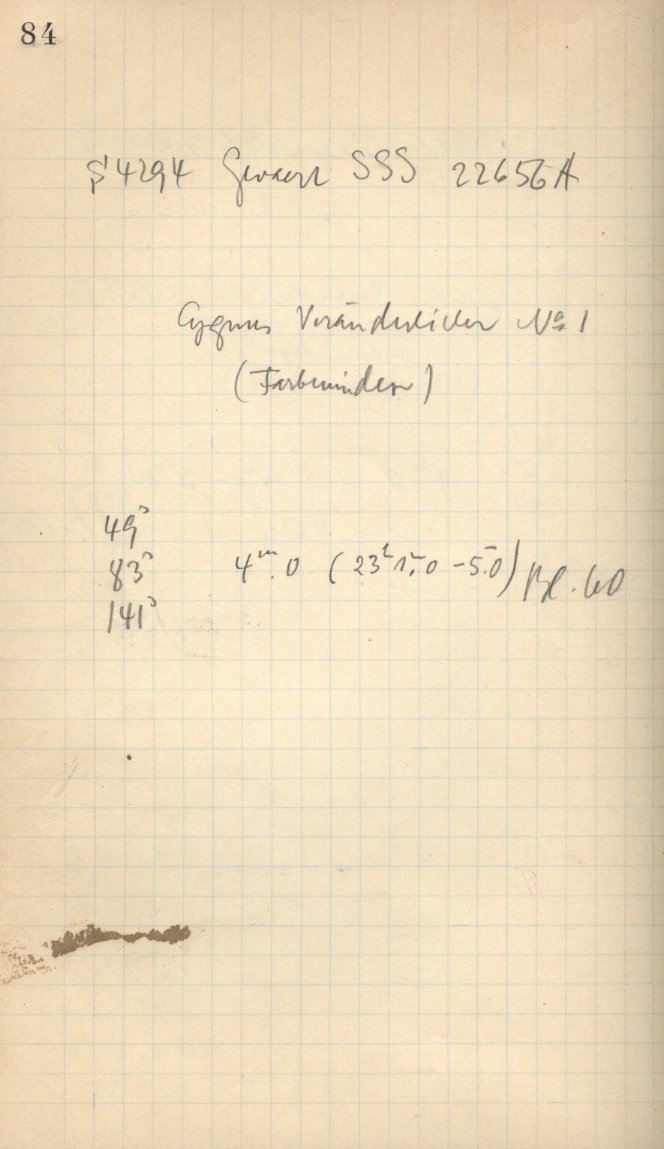 84
S 4294 Gevaert SSS 22656 A
Cygnus Veränderlicher No 1
(Farbenindex)
49°
83° 4ᵐ.0 (23ʰ1ᵐ.0 - 5ᵐ.0) Bl. 60
141°